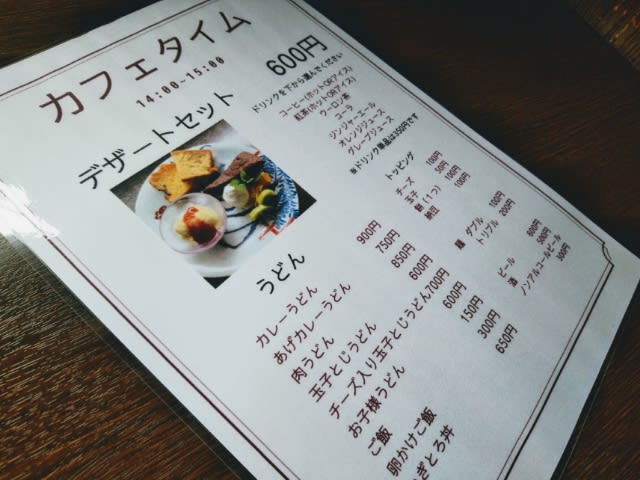 カフェタイム
14:00~15:00
デザートセット
600円
ドリンクを下から選んでください
コーヒー(ホットORアイス)
紅茶(ホットORアイス)
ウーロン茶
コーラ
ジンジャーエール
オレンジジュース
グレープジュース
※ドリンク単品は350円です
うどん
カレーうどん 900円
あげカレーうどん 750円
肉うどん 850円
玉子とじうどん 600円
チーズ入り玉子とじうどん700円
お子様うどん 600円
ご飯 150円
卵かけご飯 300円
ぎとろ丼 650円
トッピング
チーズ 100円
玉子 50円
餅(1つ) 100円
納豆 100円
麺 ダブル 100円
トリプル 200円
ビール
酒 500円
ノンアルコールビール 300円